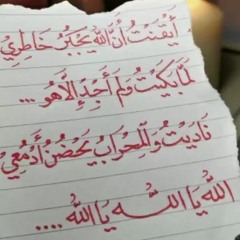 أَيْقَنْتُ أَنَّ اللَّهَ يَجْبُرُ خَاطِرِي
لَمَّا بَكَيْتُ وَلَمْ أَجِدْ إِلَّا هُو...
نَادَيْتُ وَالْمِحْرَابُ يَحْضُنُ أَدْمُعِي
اللهُ يَا اللهُ يَا اللهُ....